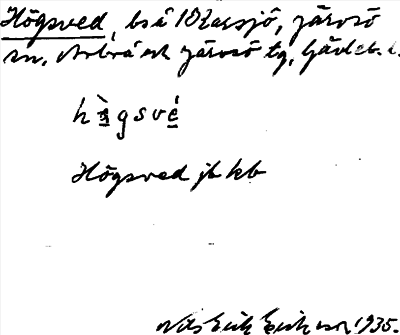 Högsved, bs å Karsjö, Järvsö
sn, Arbrå och Järvsö tg, Gävleb. l.
h g s v é
Högsved jb kb
Nils Erik Eriksson 1935.